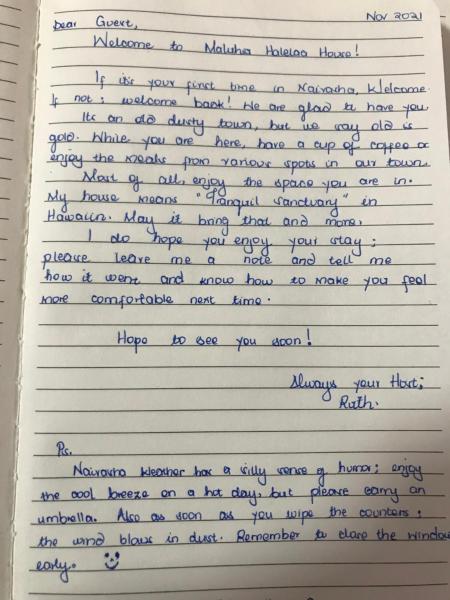 Dear Guest,
Nov 2021
Welcome to Maluha Haleloa House!
If its your first time in Naivasha, Welcome.
If not; welcome back! We are glad to have you.
Its an old dusty town, but we say old is
gold. While you are here, have a cup of coffee or
enjoy the meals from various spots in our town.
Most of all, enjoy the space you are in.
My house means "Tranquil sanctuary" in
Hawaiin. May it bring that and more.
I do hope you enjoy your stay;
please leave me a note and tell me
how it went and know how to make you feel
more comfortable next time.
Hope to see you soon!
Always your Host;
Ruth.
Ps.
Naivasha Weather has a silly sense of humor; enjoy
the cool breeze on a hot day, but please carry an
umbrella. Also as soon as you wipe the counters;
the wind blows in dust. Remember to close the window
early.